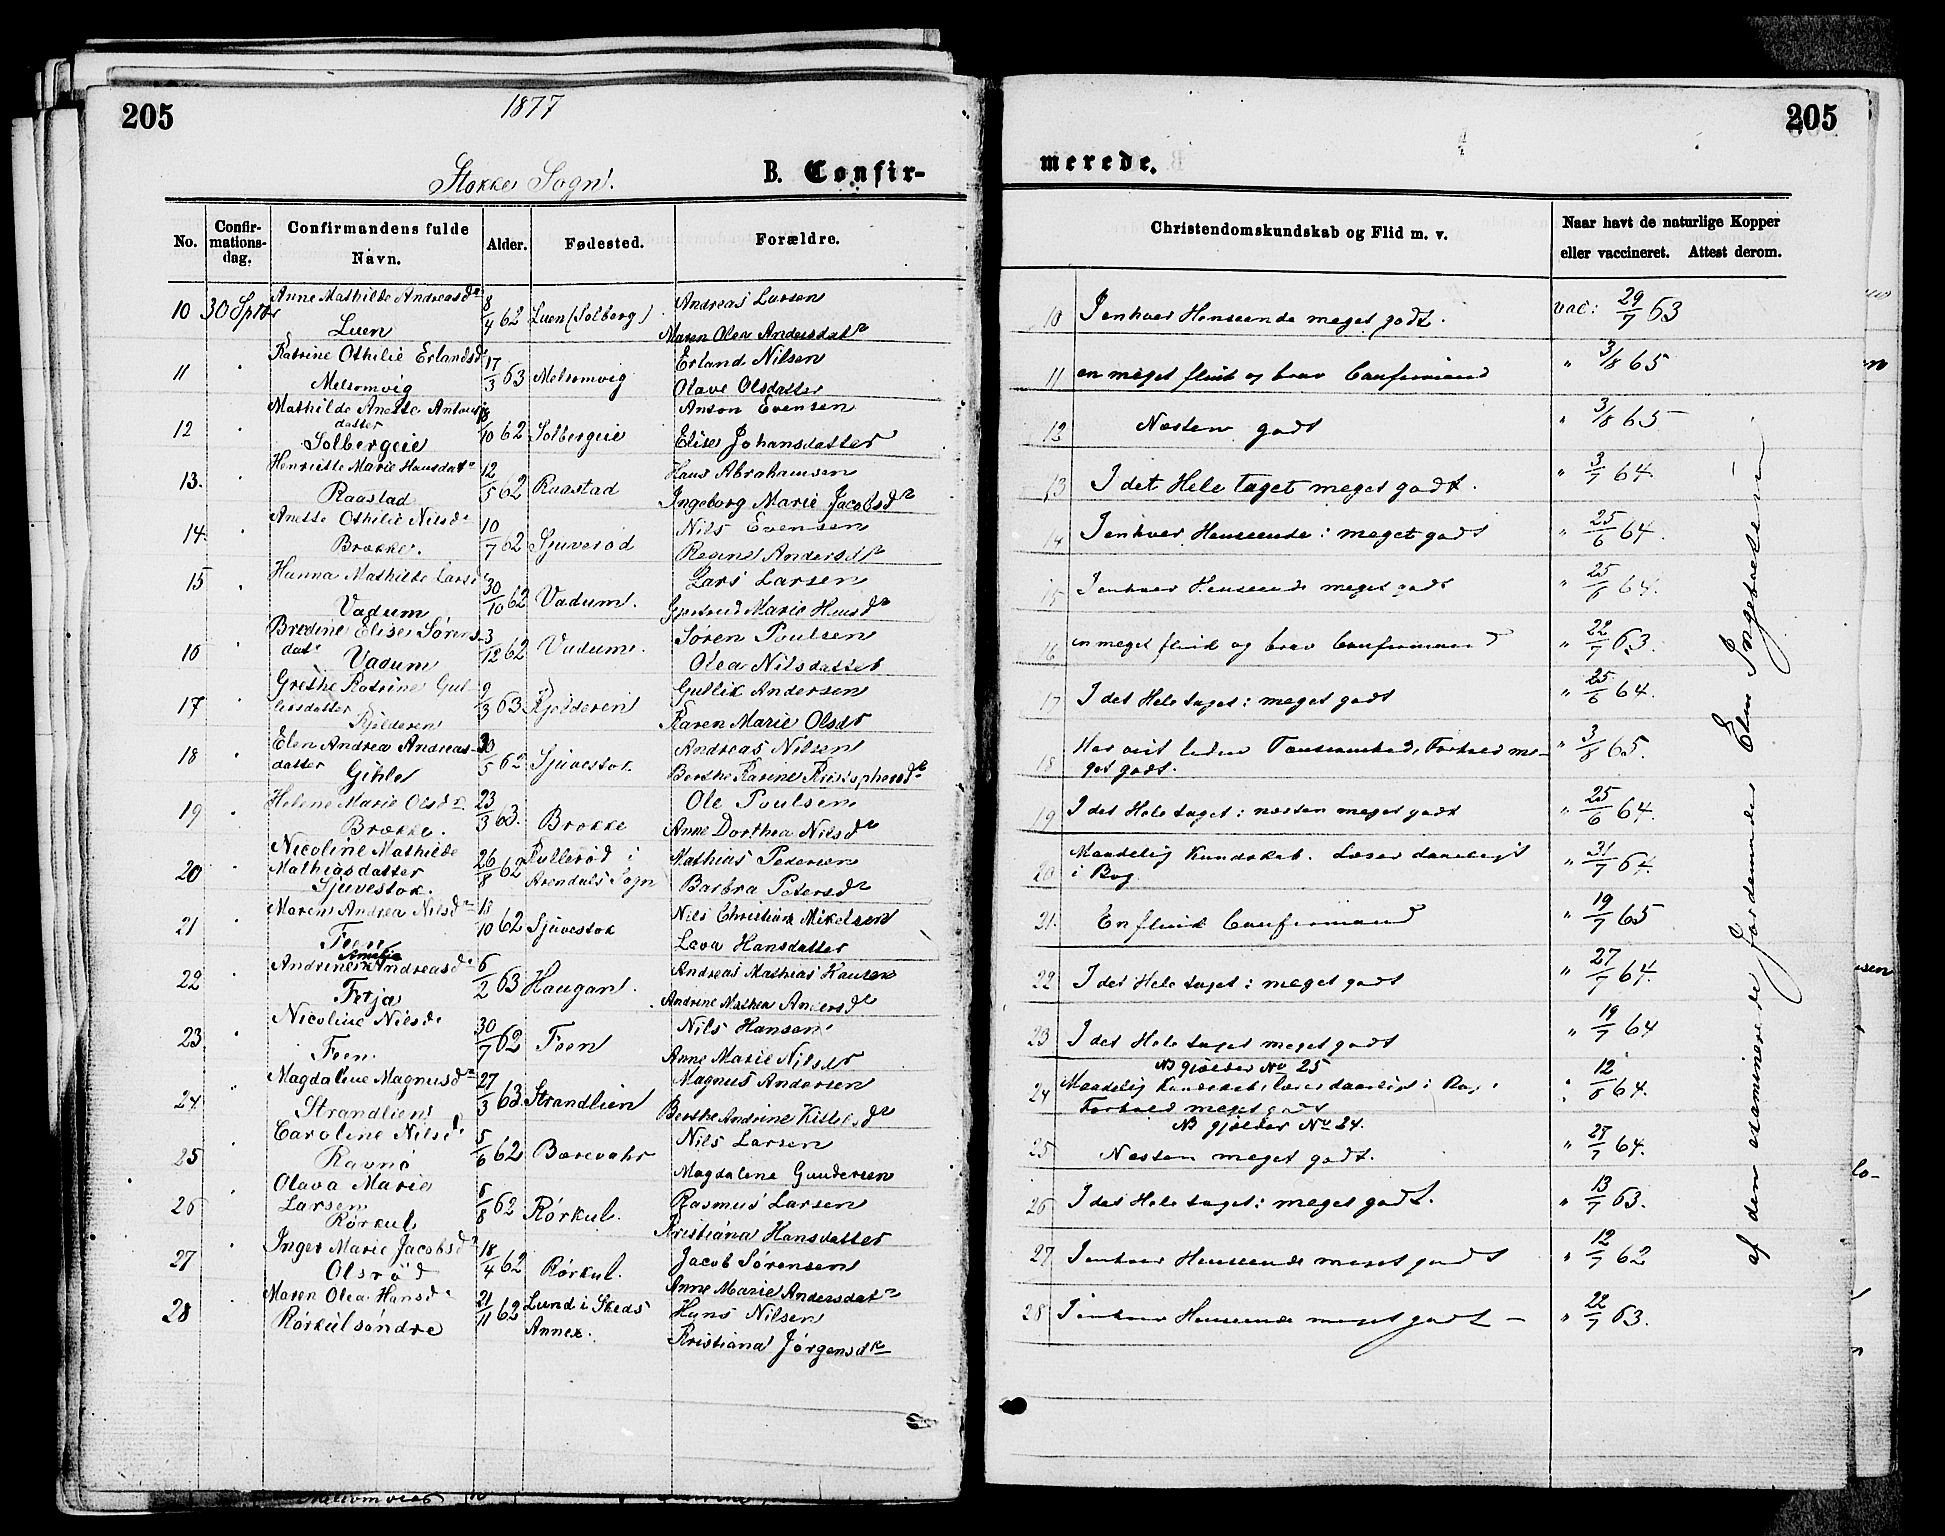 205
1877
205
Stokke Sogn.
B. Confir-
merede.
No.
Confir-
mations-
dag.
Confirmandens fulde
Navn.
Alder.
Fødested.
Forældre.
Christendomskundskab og Flid m. v.
Naar havt de naturlige Kopper
eller vaccineret. Attest derom.
10 30 Sptbr Anne Mathilde Andreasdr 8/4 62 Luen (Solberg) Andreas Larsen
Luen Maren Olea Andersdatr
10 I enhver Henseende meget godt. vac: 29/7 63
11 " Katrine Othilie Erlandsdr 17/3 63 Melsomvig Erland Nilsen
Melsomvig Olave Olsdatter
11 en meget flink og brav Confirmand " 3/8 65
12 " Mathilde Anette Antons 18/10 62 Solbergeie Anton Evensen
datter
Solbergeie Elise Johansdatter
12 Næsten godt " 3/8 65
13. " Henriette Marie Hansdatr 12/5 62 Raastad Hans Abrahamsen
Raastad Ingeborg Marie Jacobsdr
13 I det Hele taget meget godt. " 3/7 64.
14. " Anette Othilie Nilsdr 10/7 62 Sjuverød Nils Evensen
Brække. Regine Andersdr
14 I enhver Henseende: meget godt " 25/6 64.
15 " Hanna Mathilde Larsdr 30/10 62 Vadum. Lars Larsen
Vadum Gjertrud Marie Hansdr
15 I enhver Henseende meget godt " 25/6 64.
16 " Bredine Elise Sørens- 3/12 62 Vadum. Søren Poulsen
datr Vadum Olea Nilsdatter
16 en meget flink og brav Confirmand " 22/7 63.
17 " Grethe Katrine Gul- 9/3 63 Kjilderen Gullik Andersen
liksdatter
Kjilderen Karen Marie Olsdr
17 I det Hele taget: meget godt " 25/6 64.
18 " Elen Andrea Andreas- 30/5 62 Sjuvestok Andreas Nilsen
datter Gihle Berthe Karine Kristophersdr
18 Har vist liden Forhold me-
get godt. " 3/8 65.
19 " Helene Marie Olsdr 23/3 63. Brække Ole Poulsen
Brække. Anne Dorthea Nilsdr
19 I det Hele taget: næsten meget godt " 25/6 64.
20 " Nicoline Mathilde 26/8 62 Kullerød i Mathias Pedersen
Mathiasdatter Arendals Sogn Barbra Petersdr
Sjuvestok.
20 Maadelig Kundskab. Læser daarligt
i Bog " 31/7 64.
21 " Maren Andrea Nilsdr 18/10 62 Sjuvestok Nils Christian Mikelsen
Feen Lava Hansdatter
21. En flink Confirmand " 19/7 65
22 " Andrine Amalie Andreasdr 6/2 63 Haugan. Andreas Mathias Hansen
Fetja Andrine Mathea Andersdr
22 I det Hele taget: meget godt " 27/7 64.
23. " Nicoline Nilsdr 30/7 62 Feen Nils Hansen
Feen Anne Marie Nilsdr
23 I det Hele taget meget godt " 19/7 64
24 " Magdaline Magnusdr 27/3 63 Strandlien Magnus Andersen
Strandlien Berthe Andrine Kittilsdr
NB gjælder No 25
24 Maadelig Kundskab, læser daarligt i Bog, : 12/6 64.
Forhold meget godt
25 Caroline Nilsdr 5/6 62 Bærevahr Nils Larsen
Ravnø Magdalene Gundersen
NB gjælder No 24.
25 Næsten meget godt. " 27/7 64.
26 " Olava Marie 5/8 62 Rørkul. Rasmus Larsen
Larsen
Rørkul Kristiana Hansdatter
26 I det Hele taget: meget godt. " 13/7 63.
27 " Inger Marie Jacobsdr 18/4 62 Rørkul. Jacob Sørensen
Olsrød Anne Marie Andersdatr
27 I enhver Henseende meget godt " 12/7 62
28 " Maren Olea Hansdr 21/11 62 Lund i Skeds Hans Nilsen
Rørkul søndre Annex. Kristiana Jørgensdr
28 I enhver Henseende meget godt – " 22/7 63.
af den examinerede Jordemoder Elen Ingebretsen